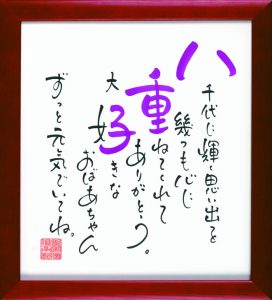 八千代に輝く思い出を
幾つも心に
重ねてくれて
ありがとう。
大好きな
おばあちゃん
ずっと元気でいてね。